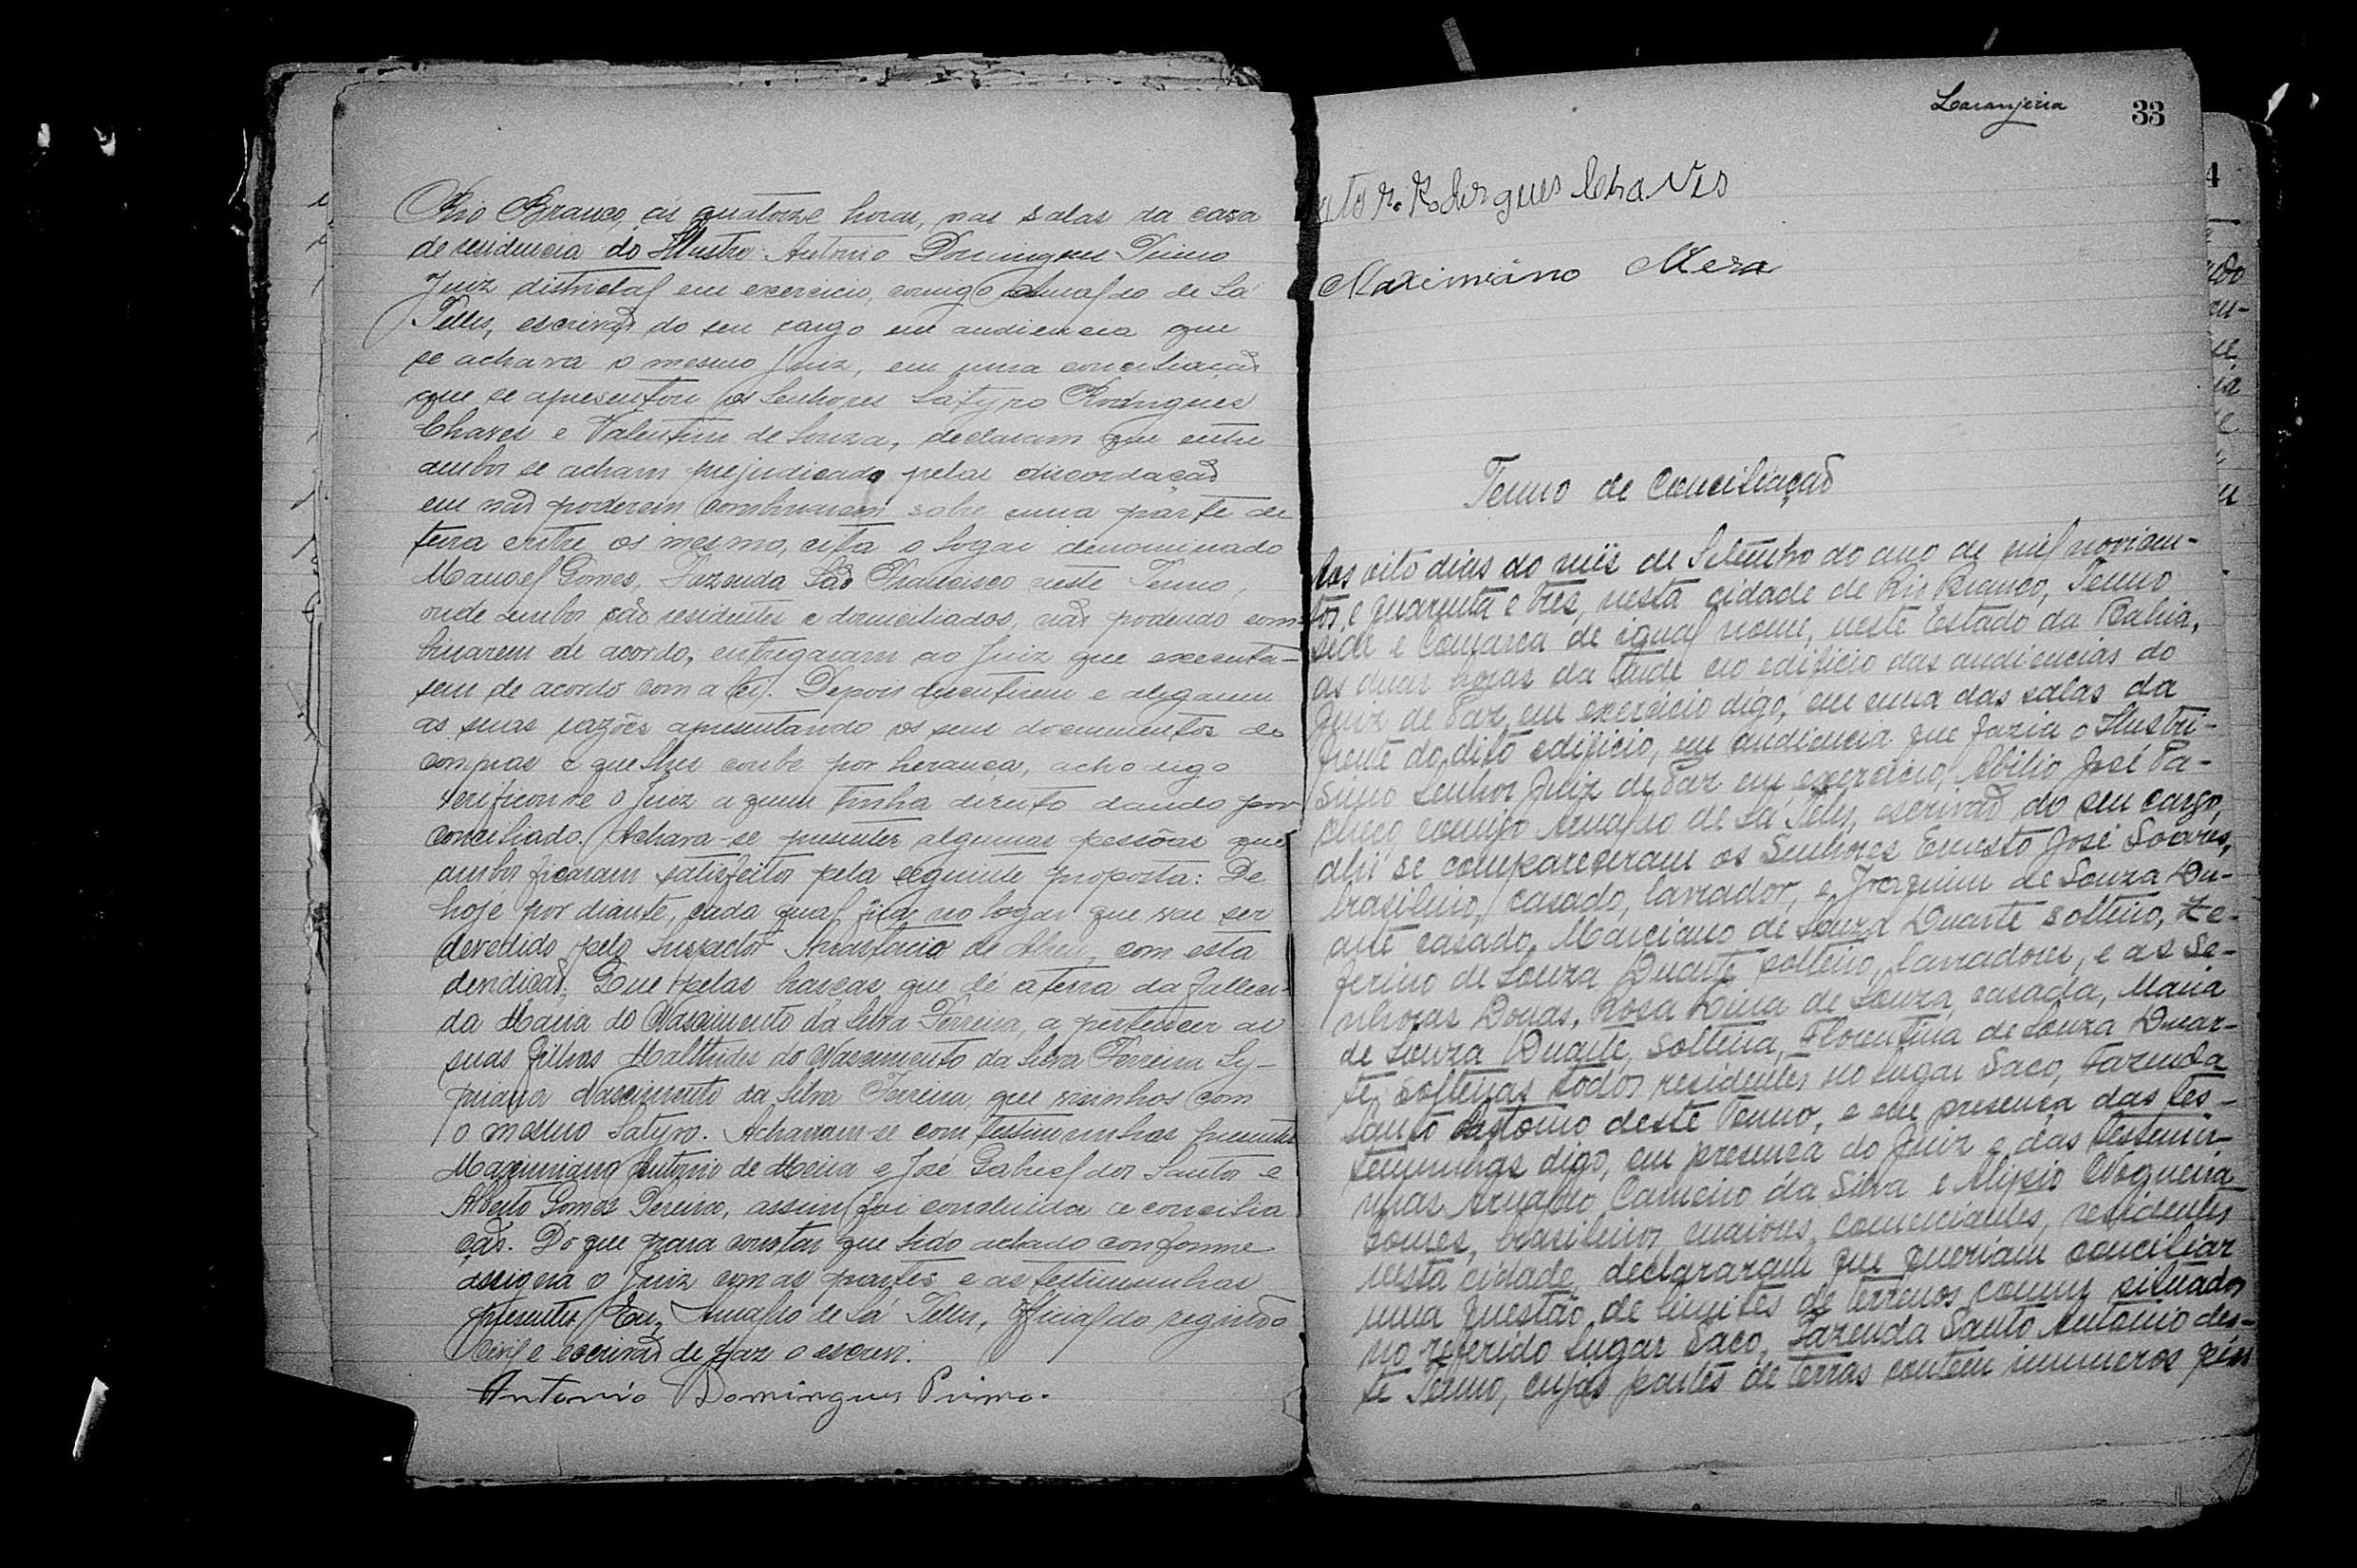 Rio Branco, ás quatorze horas, nas salas da casa
de residencia do Illustre Antonio Domingues Primo
Juiz districtal em exercicio, comigo Arnaldo de Sá
Telles, escrivão do seu cargo em audiencia que
se achava o mesmo Juiz, em uma conciliação
que se apresentou os Senhores Satyro Rodrigues
Chaves e Valentim de Souza, declaram que entre
ambos se acham prejudicado pelas discordação
em não poderem combinarem sobre uma parte de
terra entre os mesmo, cita o logar denominado
Manoel Gomes, Fazenda São Francisco neste Termo,
onde ambos são residentes e domiciliados, não podendo com-
binarem de acordo, entregaram ao Juiz que executa-
sem de acordo com a lei. Depois descutirem e alegarem
as suas razões apresentando os seus documentos de
compras e que lhes coube por herança, acho digo
verificouse o Juiz a quem tinha direito dando por
conciliado. Achava-se presentes algumas pessôas que
ambos ficaram satisfeitos pela seguinte proposta: De
hoje por diante, cada qual fica no logar que vae ser
devedido pelo Inspector Anastacio de Abreu, com esta
dividição. Que pelas que dé a terra da falleci-
da Maria do Nascimento da Silva Ferreira, a pertencer as
suas filhas Malthides do Nascimento da Silva Ferreira Cy-
priana Nascimento da Silva Ferreira, que visinhos com
o mesmo Satyro. Acharam-se com testimunhas presentes
Maximiano Antonio de Meira e José Gabriel dos Santos e
Alberto Gomes Pereira, assim foi concluida a concilia
ção. Do que para constar que lido achado conforme
assigna o Juiz com as partes e as testimunhas
presentes. Eu, Arnaldo de Sá Telles, Official do registro
Civil e escrivão de paz o escrevi.
Antonio Domingues Primo.
Laranjeira 33
Rodrigues Chaves
Maximiano Mera
Termo de Conciliação
Aos oito dias do mês de Setembro do ano de mil novicen-
tos e quarenta e três, nesta cidade de Rio Branco, Termo
séde e Comarca de igual nome, neste Estado da Bahia,
as duas horas da tarde no edificio das audiencias do
Juiz de Paz, em exercicio digo, em uma das salas da
frente do dito edificio, em audiencia que fazia o Ilustri-
simo Senhor Juiz de Paz em exercicio, Abilio José Pa-
checo comigo Arnaldo de Sá Teles, escrivão do seu cargo,
ahi se compareseram os Senhores Ernesto José Soares,
brasileiro, casado, lavrador, e Joaquim de Souza Du-
arte casado, Marciano de Souza Duarte solteiro, Ze-
ferino de Souza Duarte solteiro, lavradores, e as Se-
nhoras Donas, Rosa Lina de Souza, casada, Maria
de Souza Duarte, solteira, Florentina de Souza Duar-
te, solteiras todos residentes no lugar Saco, Fazenda
Santo Antonio deste Termo, e em presença das tes-
temunhas digo, em presença do Juiz e das testemu-
nhas Arnaldo Carneiro da Silva e Alipio Nogueira
Gomes, brasileiros, maiores, comerciantes, residentes
nesta cidade, declararam que queriam conciliar
uma questão de limites de terrenos comum situados
no referido lugar Saco, Fazenda Santo Antonio des-
te Termo, cujas partes de terras contem inumeros